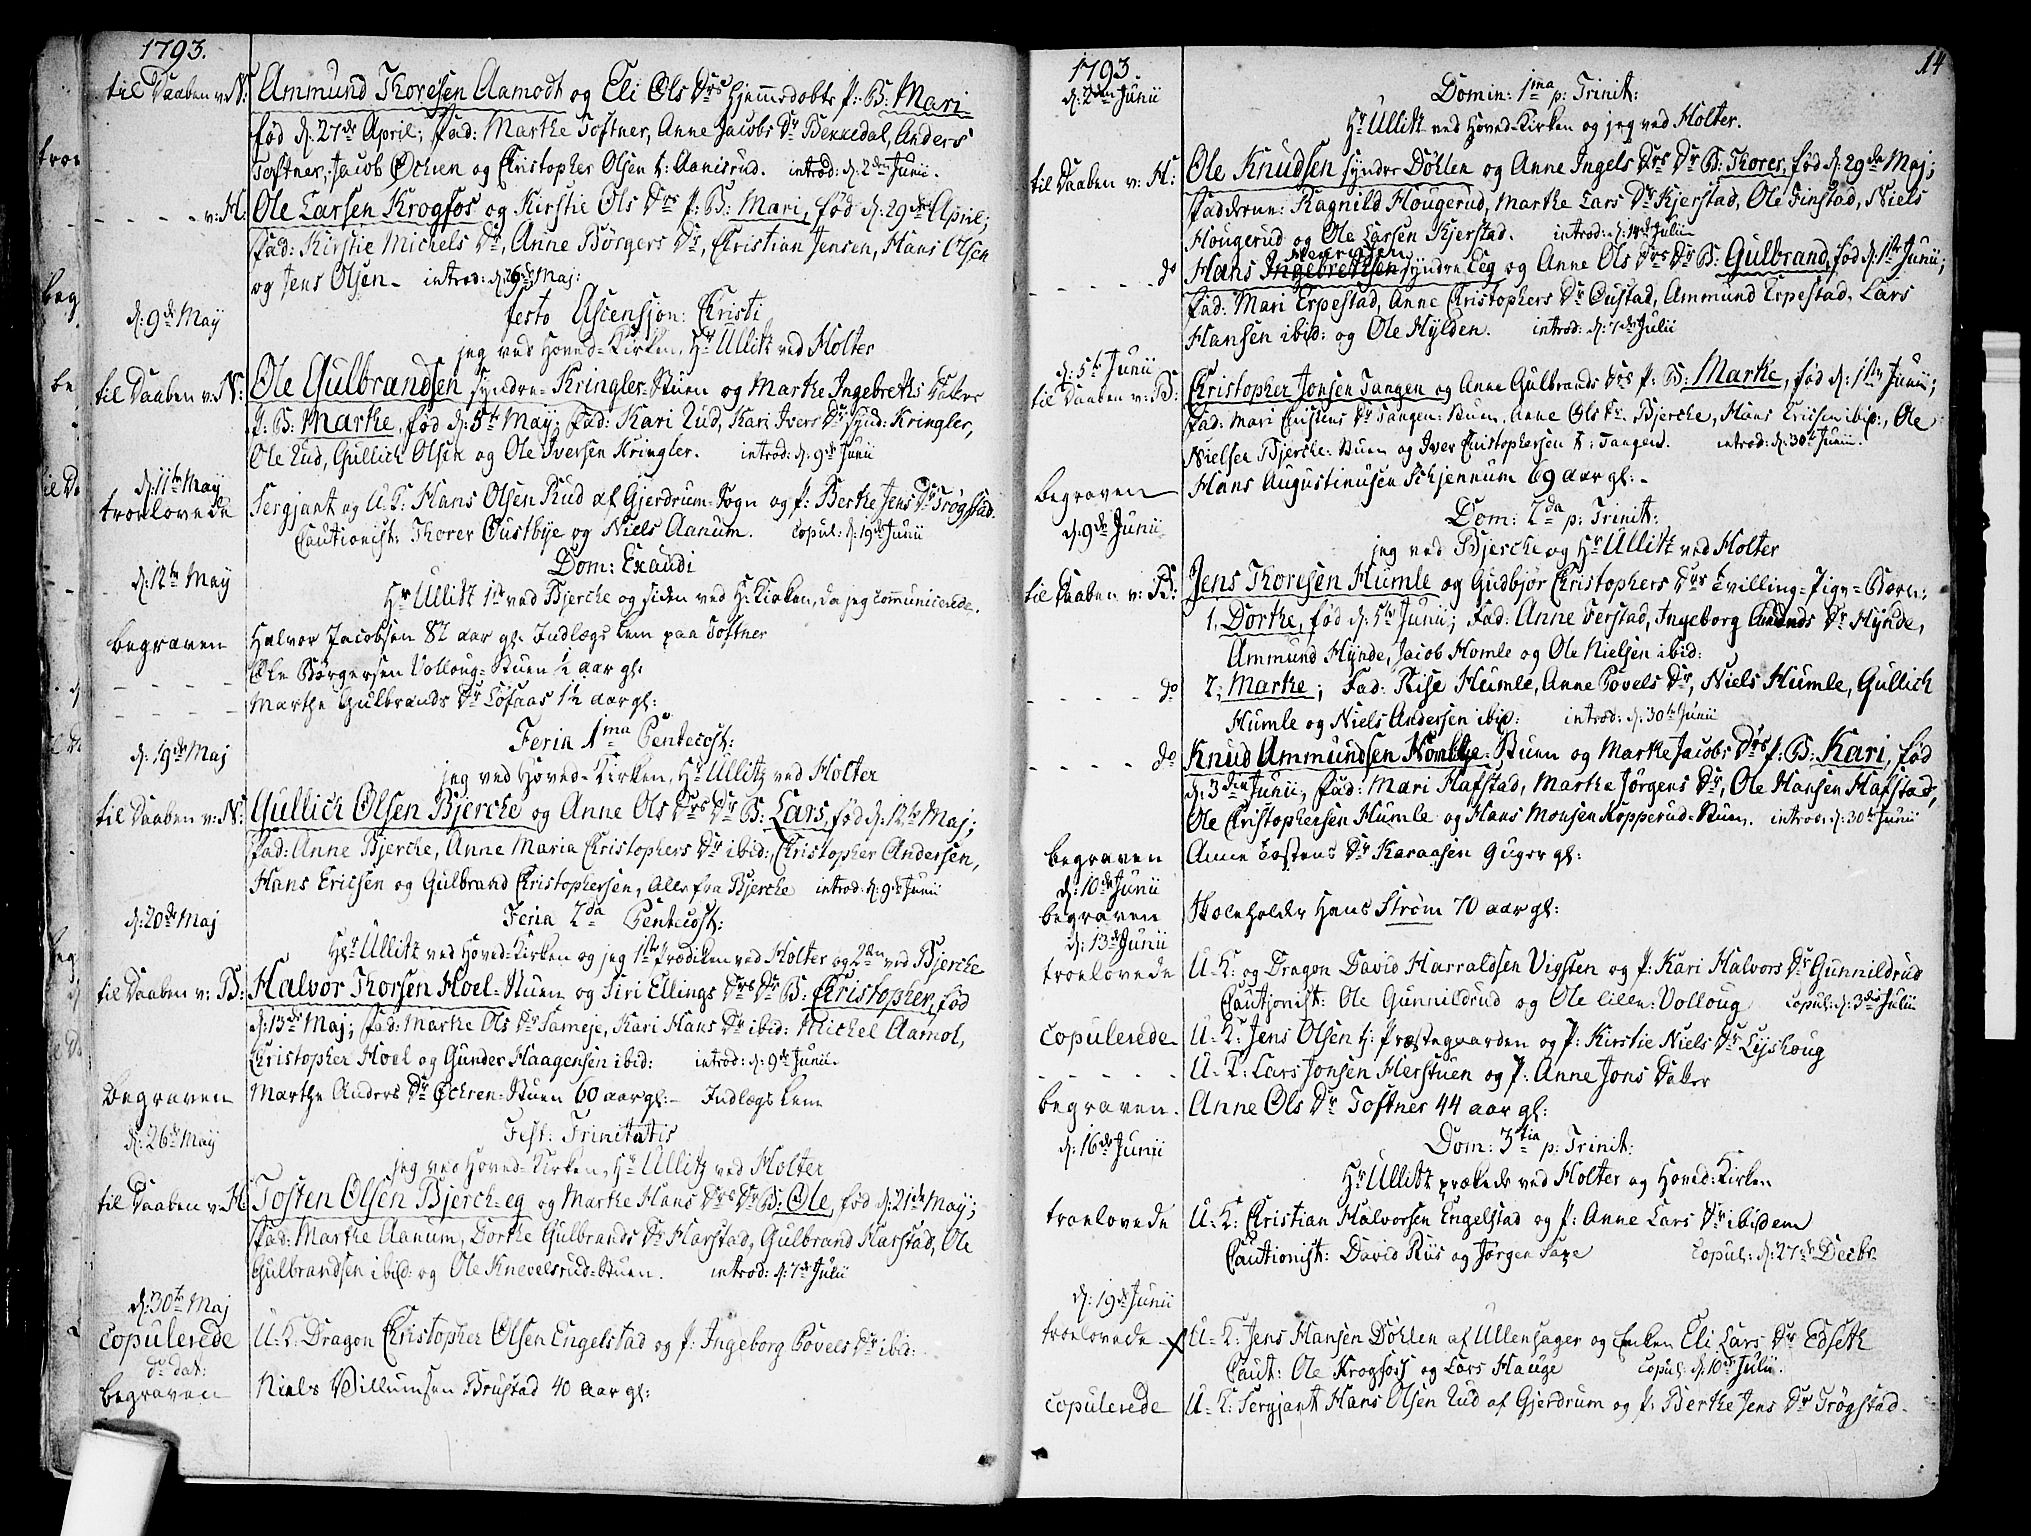 1793.
til Daaben v: N: Ammund Thoresen Aamodt og Eli Ols Drs hjemmedøbte P: B: Mari
fød d: 27de April; Fad: Marthe Toftner, Anne Jacobs Dr Bekkedal, Anders
Toftner, Jacob Øchren og Christopher Olsen t: Aamisrud. introd: d: 2den Junii.
v: H: Ole Larsen Krogfos og Kirstie Ols Drs P: B: Mari, fød d: 29de April;
Fad: Kirstie Michels Dr, Anne Børgers Dr, Christian Jensen, Hans Olsen
og Jens Olsen. introd: d: 26de Maj:
d: 9de May festo Ascensjon: Christi
jeg ved Hoved-Kirken, Hr Ullitz ved Holter
til Daaben v: N: Ole Gulbrandsen syndre-Kringler-Stuen og Marthe Ingebreths Datters
P: B: Marthe, fød d: 5te May; Fad: Kari Rud, Kari Ivers Dr synd: Kringler,
Ole Rud, Gullich Olsen og Ole Iversen Kringler. introd: d: 9de Junii
d: 11te May
troelovede Sergjant og U: K: Hans Olsen Rud af Gjerdrum-Sogn og P: Berthe Jens Dr Trøgstad.
Cautionist: Thorer Oustbye og Niels Aanum. Copul: d: 19de Junii
d: 12te May Dom: Exaudi
Hr Ullitz 1st ved Bjercke og siden ved H: Kirken, da jeg communicerede.
begraven Halvor Jacobsen 82 aar gl: Indlægs lem paa Toftner
Ole Børgersen Volloug-Stuen ½ aar gl:
Marthe Gulbrands Dr Lofaas 1½ aar gl:
d: 19de Maj Feria 1ma Pentecost:
jeg ved Hoved-Kirken, Hr Ullitz ved Holter
til Daaben v: N: Gullich Olsen Bjercke og Anne Ols Drs Dr B: Lars, fød d: 12te Maj;
Fad: Anne Bjercke, Anne Maria Christophers Dr ibid:, Christopher Andersen,
Hans Ericsen og Gulbrand Christophersen, Alle fra Bjercke introd: d: 9de Junii
d: 20de Maj Feria 2da Pentecost:
Hr Ullitz ved Hoved-Kirken og jeg 1ste Prædiken ved Holter og 2den ved Bjercke
til Daaben v: B: Halvor Thorsen Hoel-Stuen og Siri Ellings Drs Dr B: Christopher, fød
d: 13de Maj; Fad: Marthe Ols Dr Sameje, Kari Hans Dr ibid: Michel Aamot,
Christopher Hoel og Gunder Haagensen ibid: introd: d: 9de Junii.
Begraven Marthe Anders Dr Øchren-Stuen 60 aar gl:- Indlægs Lem
d: 26de May Fest: Trinitatis
jeg ved Hoved-Kirken, Hr Ullitz ved Holter
til Daaben v: H: Tosten Olsen Bjerch-eg og Marthe Hans Drs Dr B: Ole, fød d: 21de May;
Fad: Marthe Aanum, Dorthe Gulbrands Dr Harstad, Gulbrand Harstad, Ole
Gulbrandsen ibid: og Ole Knevelsrud-Stuen. introd: d: 7de Julii
d: 30te Maj
Copulerede U: K: Dragon Christopher Olsen Engelstad og P: Ingeborg Povels Dr ibid:
do dat:
begraven Niels Villumsen Brustad 40 aar gl:
14
1793
d: 2den Junii Domin: 1ma p: Trinit:
Hr Ullitz ved Hoved-Kirken og jeg ved Holter.
til Daaben v: H: Ole Knudsen syndre Døhlen og Anne Ingels Drs Dr B: Thores, fød d: 29de Maj;
Fadderne: Ragnild Hougerud, Marthe Lars Dr Kjerstad, Ole Finstad, Niels
Hougerud og Ole Larsen Kjerstad. introd: d: 14de Julii
do Hans Ingebretsen syndre Eeg og Anne Ols Drs Dr B: Gulbrand, fød d: 1ste Junii;
Fad: Mari Erpestad, Anne Christophers Dr Oustad, Ammund Erpestad, Lars
Hansen ibid: og Ole Hylden. introd: d: 7de Julii
d: 5te Junii
til Daaben v: B: Christopher Jonsen Tangen og Anne Gulbrands Drs P: B: Marthe, fød d: 1ste Junii;
Fad: Mari Enistens Dr Tangen-Stuen, Anne Ols Dr Bjercke, Hans Ericsen ibid:, Ole
Nielsen Bjercke-Stuen og Iver Christophersen t: Tangen. introd: d: 30te Junii.
begraven Hans Augustinusen Schjennum 69 aar gl:-
d: 9de Junii Dom: 2da p: Trinit:
jeg ved Bjercke og Hr Ullitz ved Holter
til Daaben v: B: Jens Thoresen Humle og Gudbjør Christophers Drs Tvilling-Pige-Børn:
1. Dorthe, fød d: 5te Junii; Fad: Anne Ferstad, Ingeborg Amunds Dr Hynde,
Ammund Hynde, Jacob Homle og Ole Nielsen ibid:
do 2, Marthe; Fad: Rise Humle, Anne Povels Dr, Niels Humle, Gullich
Humle og Niels Andersen ibid: introd: d: 30te Junii
do Knud Ammundsen Homble-Stuen og Marthe Jacobs Drs P: B: Kari, fød
d: 3die Junii, Fad: Mari Hafstad, Marthe Jørgens Dr, Ole Hansen Hafstad,
Ole Christophersen Humle og Hans Monsen Kopperud-Stuen. introd: d: 30te Junii
begraven Anne Tostens Dr Karaasen 6 uger gl:
d: 10de Junii
begraven Skoleholder Hans Strøm 70 aar gl:
d: 13de Junii
troelovede U-K: og Dragon David Harraldsen Vigsten og P: Kari Halvors Dr Gunnildrud
Cautjonist: Ole Gunnildrud og Ole lillen-Volloug Copul: d: 3die Julii
Copulerede U-K: Jens Olsen t: Præstegaarden og P: Kirstie Niels Dr Lyshoug
U-K: Lars Jonsen Herstuen og P: Anne Jons Datter
begraven. Anne Ols Dr Toftner 44 aar gl:
d: 16de Junii Dom: 3tia p: Trinit:
Hr Ullitz prækede ved Holter og Hoved-Kirken
troelovede U-K: Christian Halvorsen Engelstad og P: Anne Lars Dr ibidem
Cautionist: David Riis og Jørgen Saxe Copul: d: 27de Decbr
d: 19de Junii
troelovede X U-K: Jens Hansen Døhlen af Ullensager og Enken Eli Lars Dr Edseth
Caut: Ole Krogfoss og Lars Hauge Copul: d: 10de Julii.
copulerede U-K: Sergjant Hans Olsen Rud af Gjerdrum og P: Berthe Jens Dr Trøgstad.